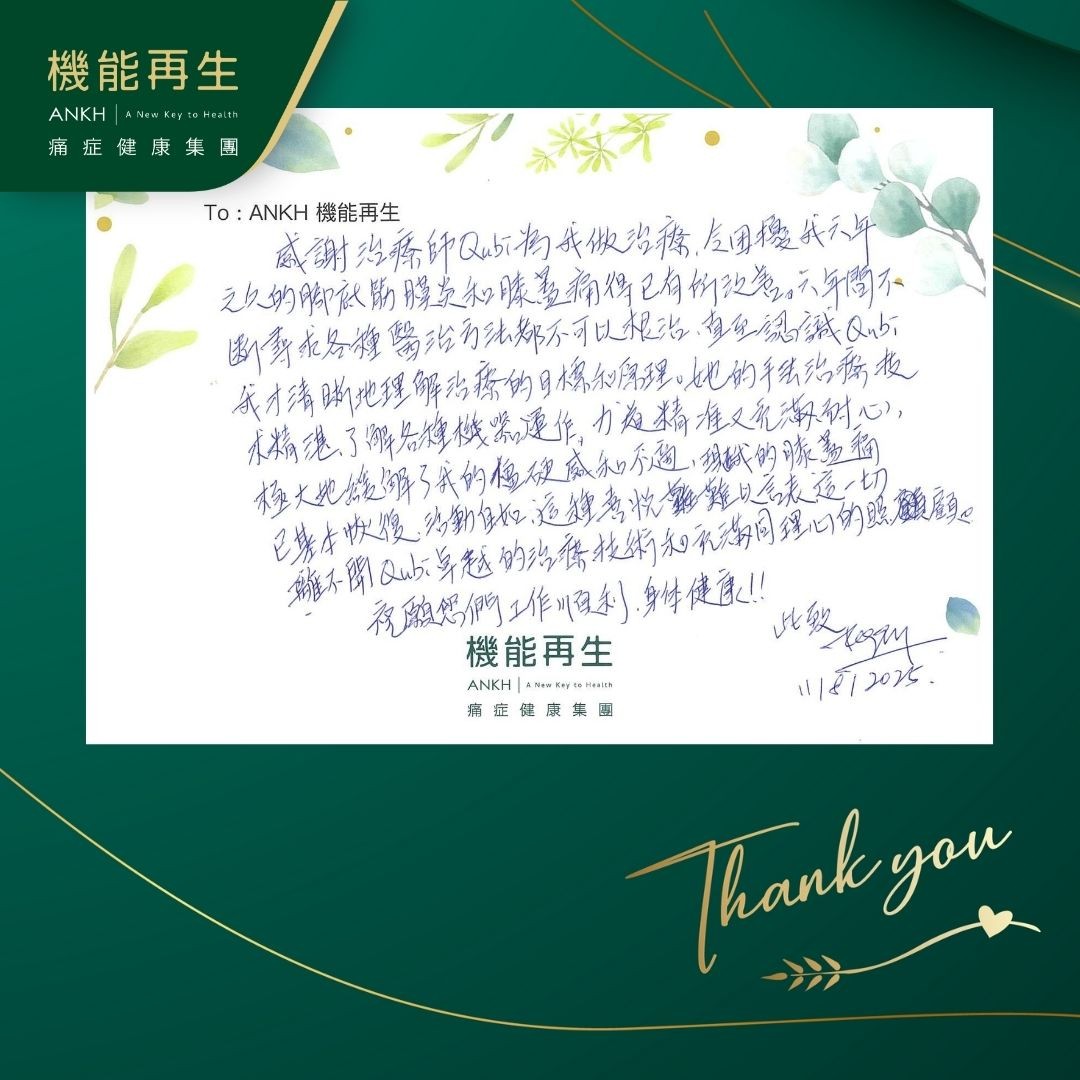 機能再生
ANKH | A New Key to Health
痛症健康集團
To : ANKH 機能再生
感謝治療師Qubi為我做治療,令困擾我六年
之久的腳底筋膜炎和膝蓋痛得已有所改善。六年間不
斷尋求各種醫治方法都不可以根治,直至認識Qubi
我才清晰地理解治療的目標和原理。她的手法治療技
术精湛,了解各種機器運作,力道精准又充滿耐心,
極大地緩解了我的僵硬感和不適,現時的膝蓋痛
已基本恢復,活動自如,這種喜悦難以言表這一切
離不開Qubi卓越的治療技術和充滿同理心的照顧。
祝願您們工作順利,身体健康!!
此致
11/8/2025.
機能再生
ANKH | A New Key to Health
痛症健康集團
Thank you